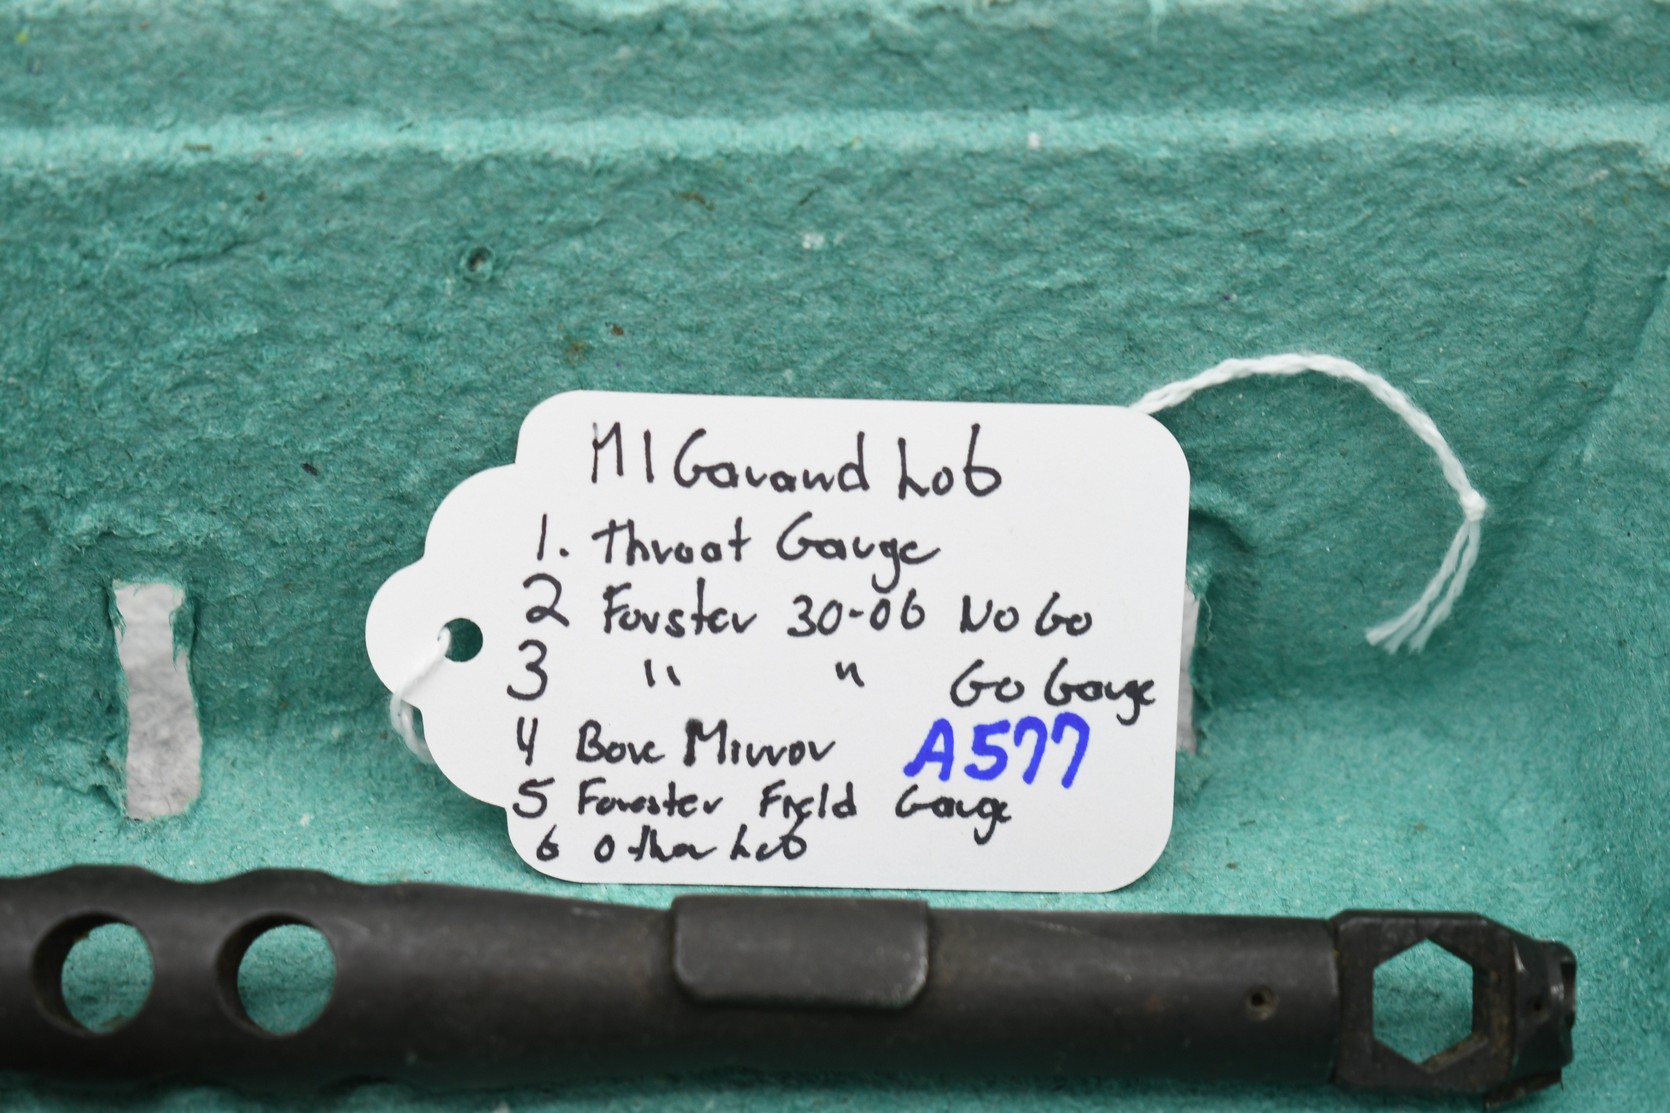 M1 Garand Lot
1. Throat Gauge
2 Forster 30-06 No Go
3 " " Go Gauge
4 Bore Mirror A577
5 Forester Field Gauge
6 Other Lot